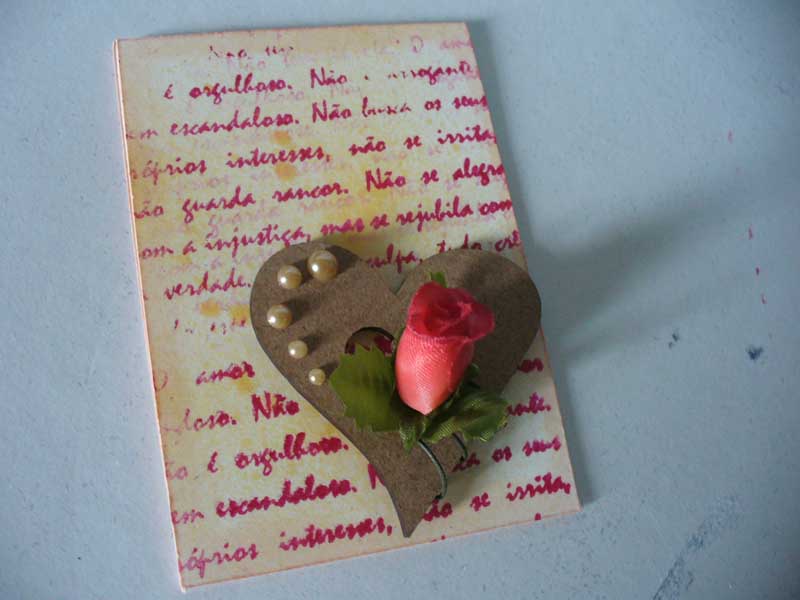 O am
é orgulhoso. Não arrogante
em escandaloso. Não busca os seus
róprios interesses, não se irrita,
ão guarda rancor. Não se alegra
om a injustiça, mas se rejubila com
a verdade. culpa, tudo cre
O amor
doso. Não ante.
ão é orgulhoso.
em escandaloso. N ca os seus
róprios interesses, não se irrita,